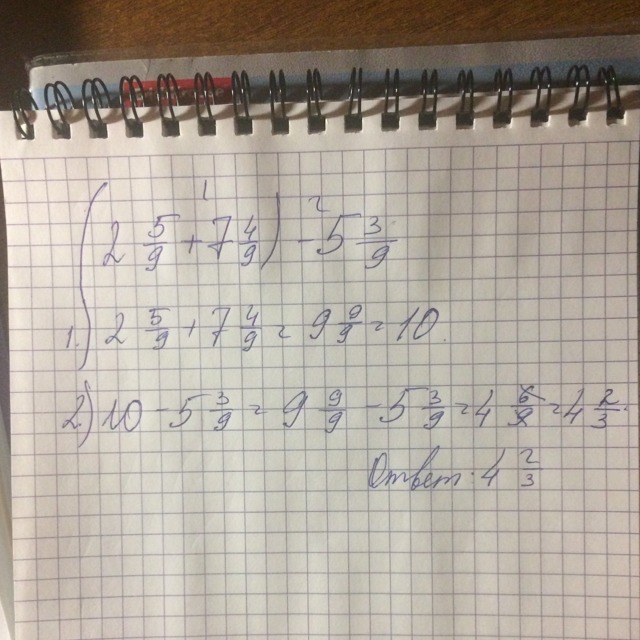 (2 5/9 + 7 4/9) - 5 3/9
1) 2 5/9 + 7 4/9 = 9 9/9 = 10.
2) 10 - 5 3/9 = 9 9/9 - 5 3/9 = 4 6/9 = 4 2/3.
Ответ: 4 2/3